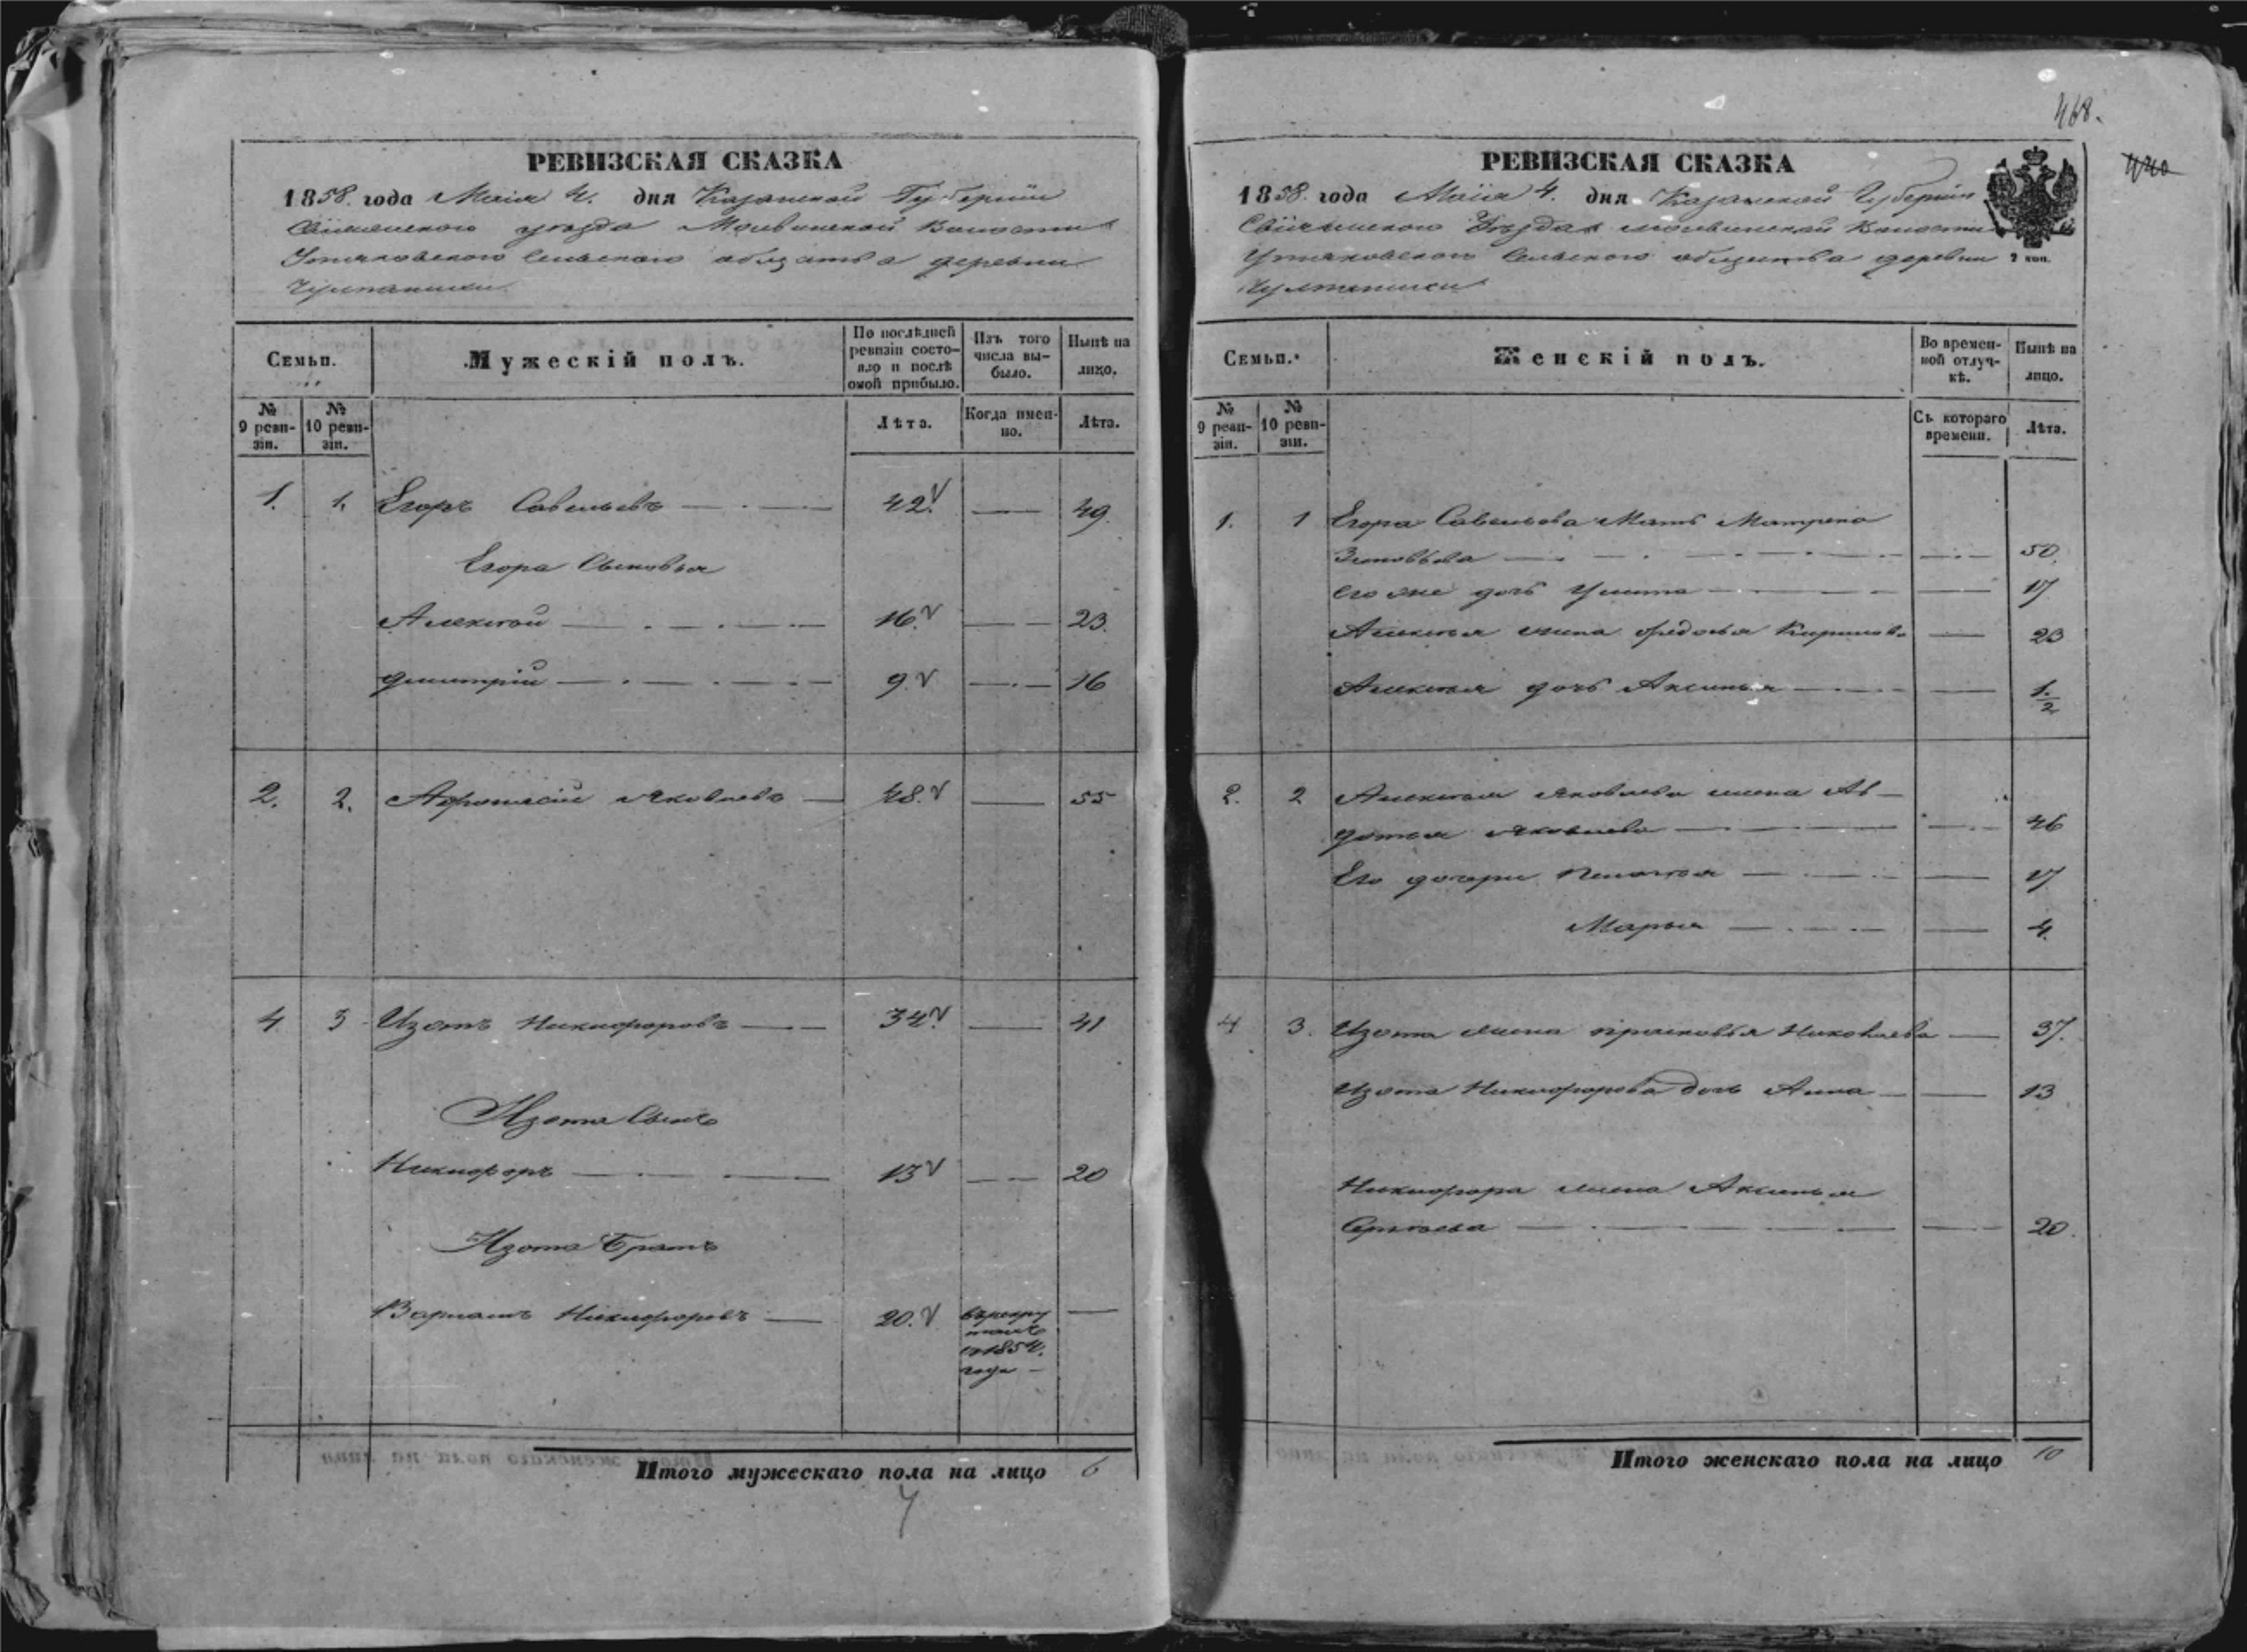 468.
РЕВИЗСКАЯ СКАЗКА
1858. года Маія 4. дня Казанской Губерніи
уѣзда Волости
Сельскаго общества деревни
Семьи.
Мужескій полъ.
По послѣдней ревизіи состояло и послѣ оной прибыло.
Изъ того числа выбыло.
Нынѣ на лицо.
№ 9 ревизіи.
№ 10 ревизіи.
Лѣта.
Когда именно.
Лѣта.
1. 1. Егоръ Савельевъ — 42. V — 49.
Егора Сыновья
Алексѣй — 16. V — 23.
Дмитрій — 9. V — 16
2. 2. Афонасій Яковлевъ — 48. V — 55
4 3 Изотъ Никифоровъ — 34 V — 41
Изота Сынъ
Никифоръ — 13 V — 20
Изота Братъ
Никифоровъ — 20. V въ рекру
тахъ
1854.
года —
Итого мужескаго пола на лицо 6
РЕВИЗСКАЯ СКАЗКА
1858. года Маія 4. дня Казанской Губерніи
Уѣзда Волости
Сельскаго общества деревни
Семьи.
Женскій полъ.
Во временной отлучкѣ.
Нынѣ на лицо.
№ 9 ревизіи.
№ 10 ревизіи.
Съ котораго времени.
Лѣта.
1. 1 Егора Савельева Мать Матрена
— 50.
его же дочь — 17
Алексѣя жена Федосья Кирилова — 23
Алексѣя дочь Аксинья — 1/2
2. 2 Яковлева жена Ав-
дотья Яковлева — 46
Его дочери Пелагея — 17
Марья — 4.
4 3. Изота жена Прасковья Николаева — 37.
Изота Никифорова дочь Анна — 13
Никифора жена Аксинья
Сергѣева — 20.
Итого женскаго пола на лицо 10